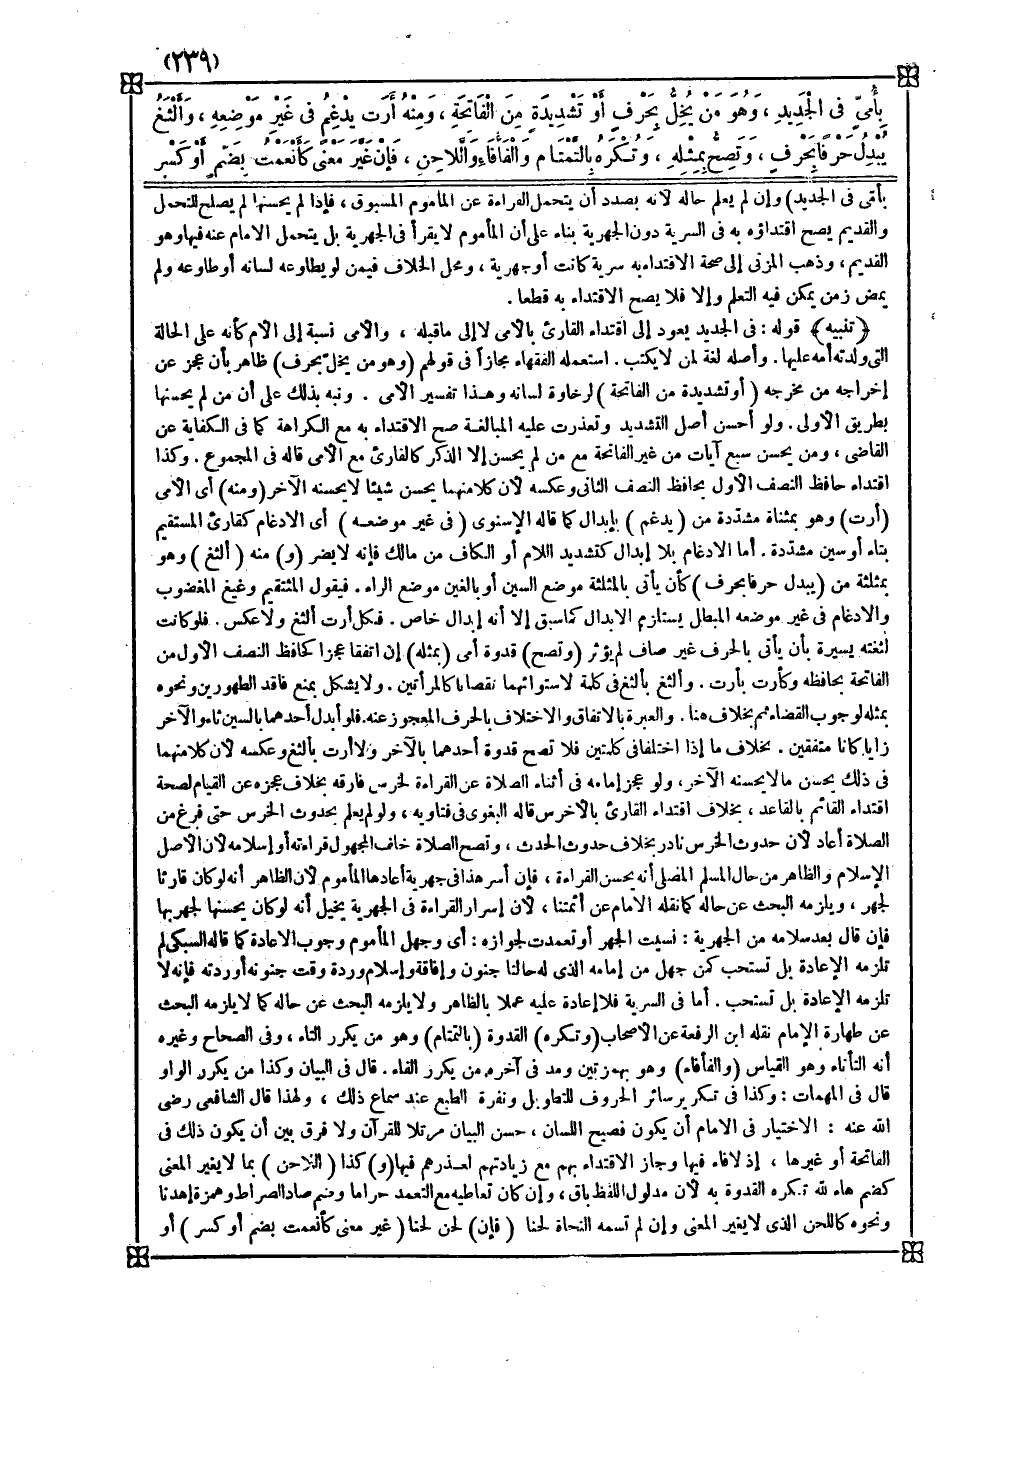 (٢٣٩)
بِأُمِّىٍّ فِى الْجَدِيدِ ، وَهُوَ مَنْ يُخِلُّ بِحَرْفٍ أَوْ تَشْدِيدَةٍ مِنَ الْفَاتِحَةِ ، وَمِنْهُ أَرَتُّ يُدْغِمُ فِى غَيْرِ مَوْضِعِهِ ، وَأَلْثَغُ
يُبْدِلُ حَرْفًا بِحَرْفٍ ، وَتَصِحُّ بِمِثْلِهِ ، وَتُكْرَهُ بِالتَّمْتَامِ وَالْفَأْفَاءِ وَاللَّاحِنِ ، فَإِنْ غَيَّرَ مَعْنًى كَأَنْعَمْتُ بِضَمٍّ أَوْ كَسْرٍ
بأمى فى الجديد) وإن لم يعلم حاله لأنه بصدد أن يتحمل القراءة عن المأموم المسبوق ، فإذا لم يحسنها لم يصلح للتحمل
والقديم يصح اقتداؤه به فى السرية دون الجهرية بناء على أن المأموم لا يقرأ فى الجهرية بل يتحمل الامام عنه فيها وهو
القديم ، وذهب المزنى إلى صحة الاقتداء به سرية كانت أو جهرية ، ومحل الخلاف فيمن لو يطاوعه لسانه أو طاوعه ولم
يمض زمن يمكن فيه التعلم وإلا فلا يصح الاقتداء به قطعا .
﴿ تنبيه ﴾ قوله : فى الجديد يعود إلى اقتداء القارئ بالأمى لا إلى ماقبله ، والأمى نسبة إلى الأم كأنه على الحالة
التى ولدته أمه عليها . وأصله لغة لمن لا يكتب . استعمله الفقهاء مجازاً فى قولهم (وهو من يخلّ بحرف) ظاهر بأن عجز عن
إخراجه من مخرجه ( أو تشديدة من الفاتحة ) لرخاوة لسانه وهذا تفسير الأمى . ونبه بذلك على أن من لم يحسنها
بطريق الأولى . ولو أحسن أصل التشديد وتعذرت عليه المبالغة صح الاقتداء به مع الكراهة كما فى الكفاية عن
القاضى ، ومن يحسن سبع آيات من غير الفاتحة مع من لم يحسن إلا الذكر كالقارئ مع الأمى قاله فى المجموع . وكذا
اقتداء حافظ النصف الأول بحافظ النصف الثانى وعكسه لأن كلا منهما يحسن شيئا لا يحسنه الآخر (ومنه) أى الأمى
(أرت) وهو بمثناة مشدّدة من ( يدغم ) بإبدال كما قاله الإسنوى ( فى غير موضعه ) أى الادغام كقارئ المستقيم
بتاء أو سين مشدّدة . أما الادغام بلا إبدال كتشديد اللام أو الكاف من مالك فإنه لايضر (و) منه ( ألثغ ) وهو
بمثلثة من (يبدل حرفا بحرف ) كأن يأتى بالمثلثة موضع السين أو بالغين موضع الراء . فيقول المثتقيم وغيغ المغضوب
والادغام فى غير موضعه المبطل يستلزم الابدال كماسبق إلا أنه إبدال خاص . فكل أرت ألثغ ولا عكس . فلو كانت
لثغته يسيرة بأن يأتى بالحرف غير صاف لم يؤثر (وتصح) قدوة أمى (بمثله) إن اتفقا عجزا كحافظ النصف الأول من
الفاتحة بحافظه وكأرت بأرت . وألثغ بألثغ فى كلمة لاستوائهما نقصانا كالمرأتين . ولا يشكل بمنع فاقد الطهورين ونحوه
بمثله لوجوب القضاء ثم بخلاف هنا . والعبرة بالاتفاق والاختلاف بالحرف المعجوز عنه . فلو أبدل أحدهما بالسين تاء والآخر
زايا كانا متفقين . بخلاف ما إذا اختلفا فى كلمتين فلا تصح قدوة أحدهما بالآخر ولا أرت بألثغ وعكسه لأن كلا منهما
فى ذلك يحسن مالا يحسنه الآخر ، ولو عجز إمامه فى أثناء الصلاة عن القراءة لخرس فارقه بخلاف عجزه عن القيام لصحة
اقتداء القائم بالقاعد ، بخلاف اقتداء القارئ بالأخرس قاله البغوى فى فتاويه ، ولو لم يعلم بحدوث الخرس حتى فرغ من
الصلاة أعاد لأن حدوث الخرس نادر بخلاف حدوث الحدث ، وتصح الصلاة خلف المجهول قراءته أو إسلامه لأن الأصل
الإسلام والظاهر من حال المسلم المصلى أنه يحسن القراءة ، فإن أسر هذا فى جهرية أعادها المأموم لأن الظاهر أنه لو كان قارئا
لجهر ، ويلزمه البحث عن حاله كما نقله الامام عن أئمتنا ، لأن إسرار القراءة فى الجهرية يخيل أنه لو كان يحسنها لجهر بها
فإن قال بعد سلامه من الجهرية : نسيت الجهر أو تعمدت لجوازه : أى وجهل المأموم وجوب الاعادة كما قاله السبكى لم
تلزمه الإعادة بل تستحب كمن جهل من إمامه الذى له حالتا جنون وإفاقة وإسلام وردة وقت جنونه أو ردته فإنه لا
تلزمه الإعادة بل تستحب . أما فى السرية فلا إعادة عليه عملا بالظاهر ولا يلزمه البحث عن حاله كما لا يلزمه البحث
عن طهارة الإمام نقله ابن الرفعة عن الأصحاب (وتكره) القدوة (بالتمتام) وهو من يكرر التاء ، وفى الصحاح وغيره
أنه التأتاء وهو القياس (والفأفاء) وهو بهمزتين ومد فى آخره من يكرر الفاء . قال فى البيان وكذا من يكرر الواو
قال فى المهمات : وكذا فى تكرير سائر الحروف للتطويل ونفرة الطبع عند سماع ذلك ، ولهذا قال الشافعى رضى
الله عنه : الاختيار فى الامام أن يكون فصيح اللسان ، حسن البيان مرتلا للقرآن ولا فرق بين أن يكون ذلك فى
الفاتحة أو غيرها ، إذ لا فاء فيها وجاز الاقتداء بهم مع زيادتهم لعذرهم فيها (و) كذا ( اللاحن ) بما لا يغير المعنى
كضم هاء لله تكره القدوة به لأن مدلول اللفظ باق ، وإن كان تعاطيه مع التعمد حراما وضم صاد الصراط وهمزة إهدنا
ونحوه كاللحن الذى لا يغير المعنى وإن لم تسمه النحاة لحنا ( فإن) لحن لحنا ( غير معنى كأنعمت بضم أو كسر ) أو